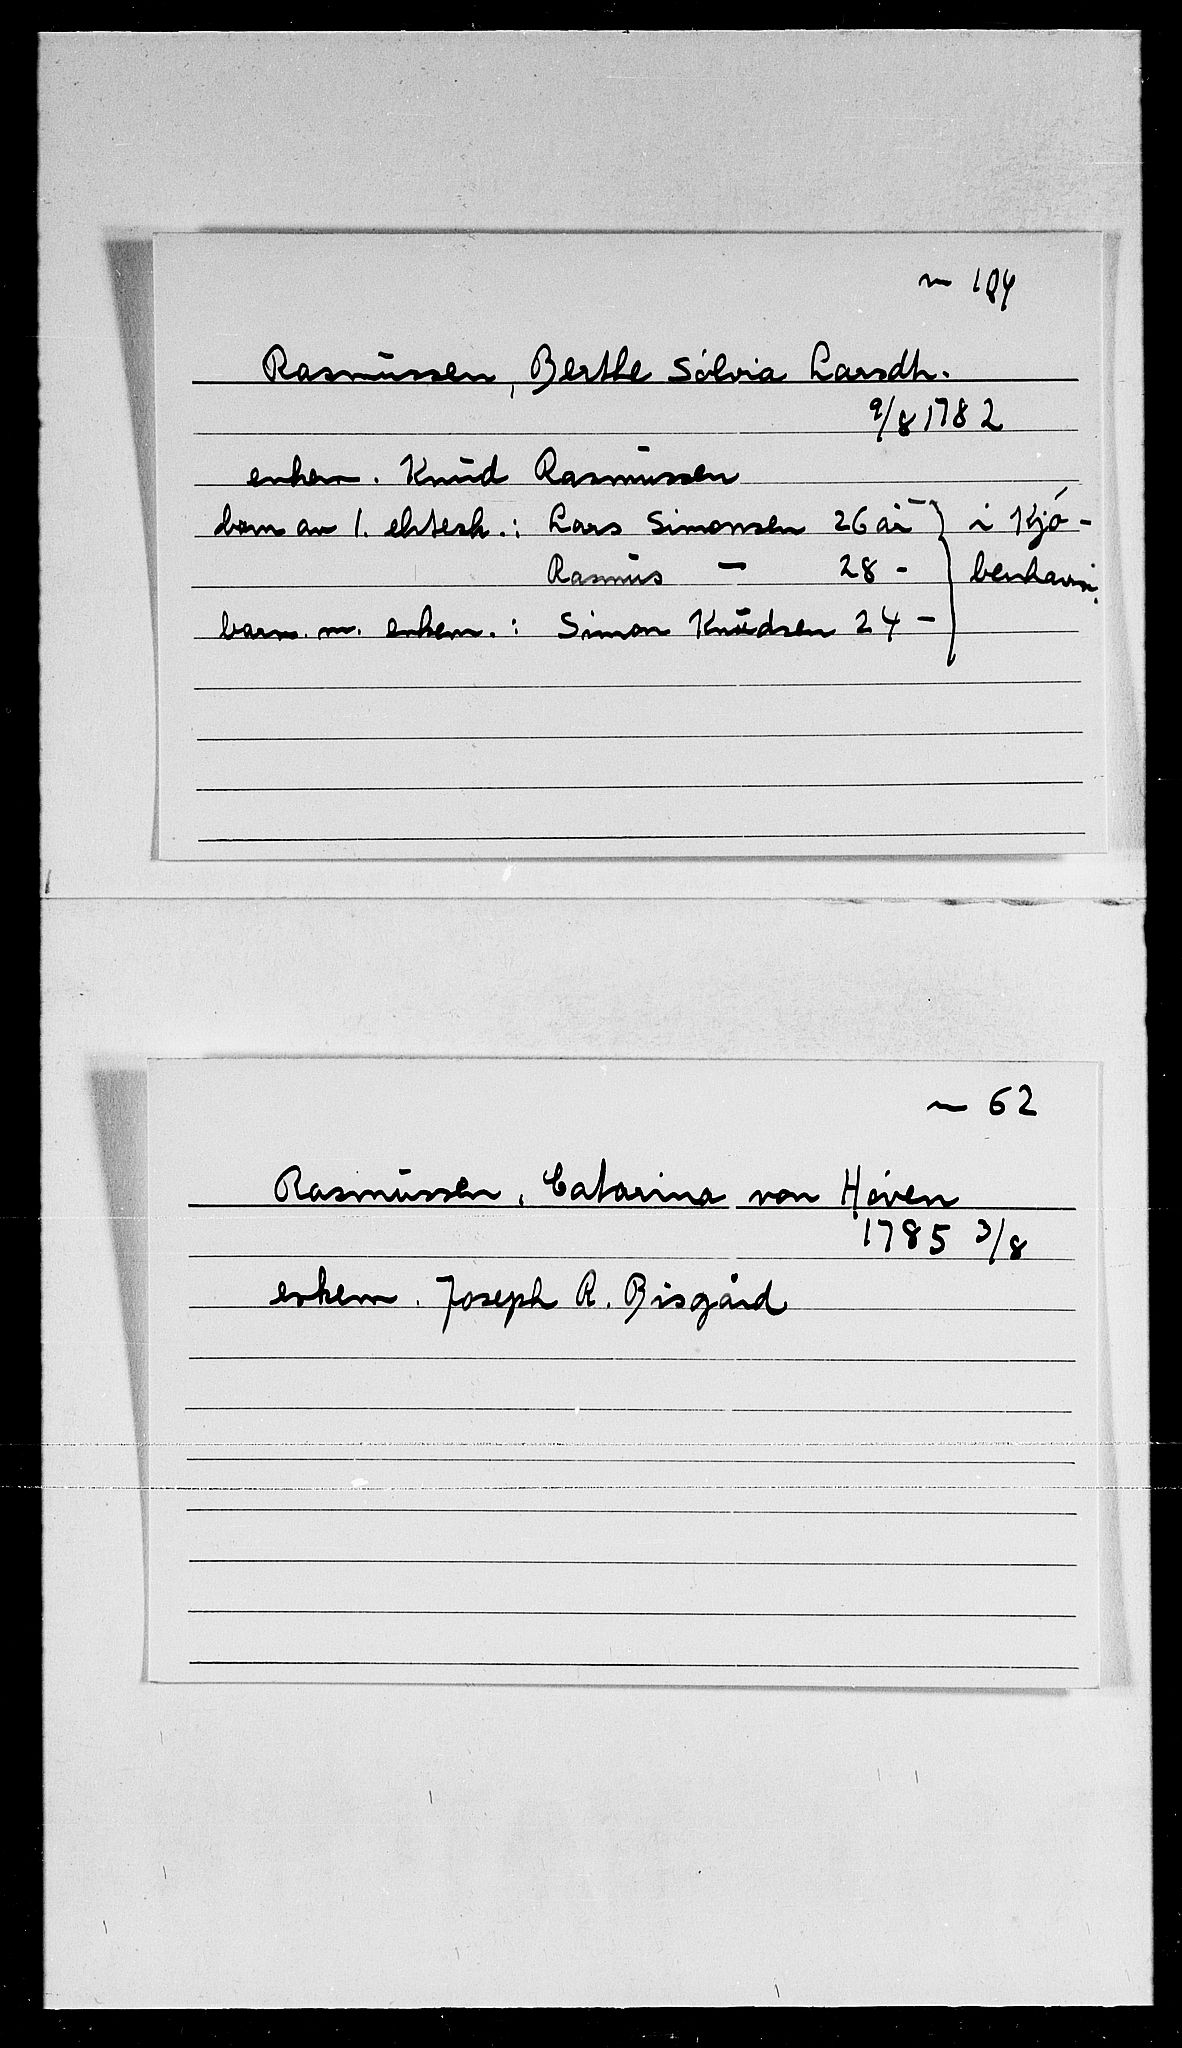 ~ 184
Rasmussen, Berthe Sólvia Larsdh.
9/8 1782
enkem. Knud Rasmussen
barn av 1. ektesk.: Lars Simonsen 26 år } i Kjó-
Rasmus — 28 - benhavn.
barn m. enkem.: Simon Knudsen 24 -
~ 62
Rasmussen, Catarina von Hóven
1785 3/8
enkem. Joseph R. Bisgård